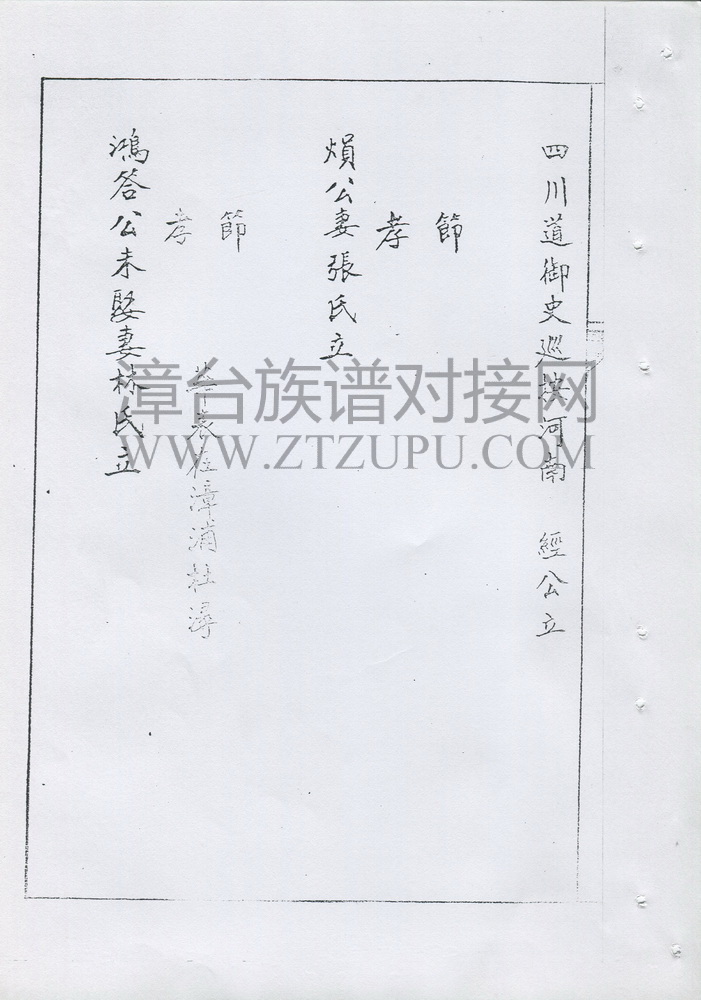 四川道御史巡按河南 經公立
節
孝
煩公妻張氏立
節
華表在漳浦杜潯
孝
鴻答公未娶妻林氏立
漳台族谱对接网
WWW.ZTZUPU.COM